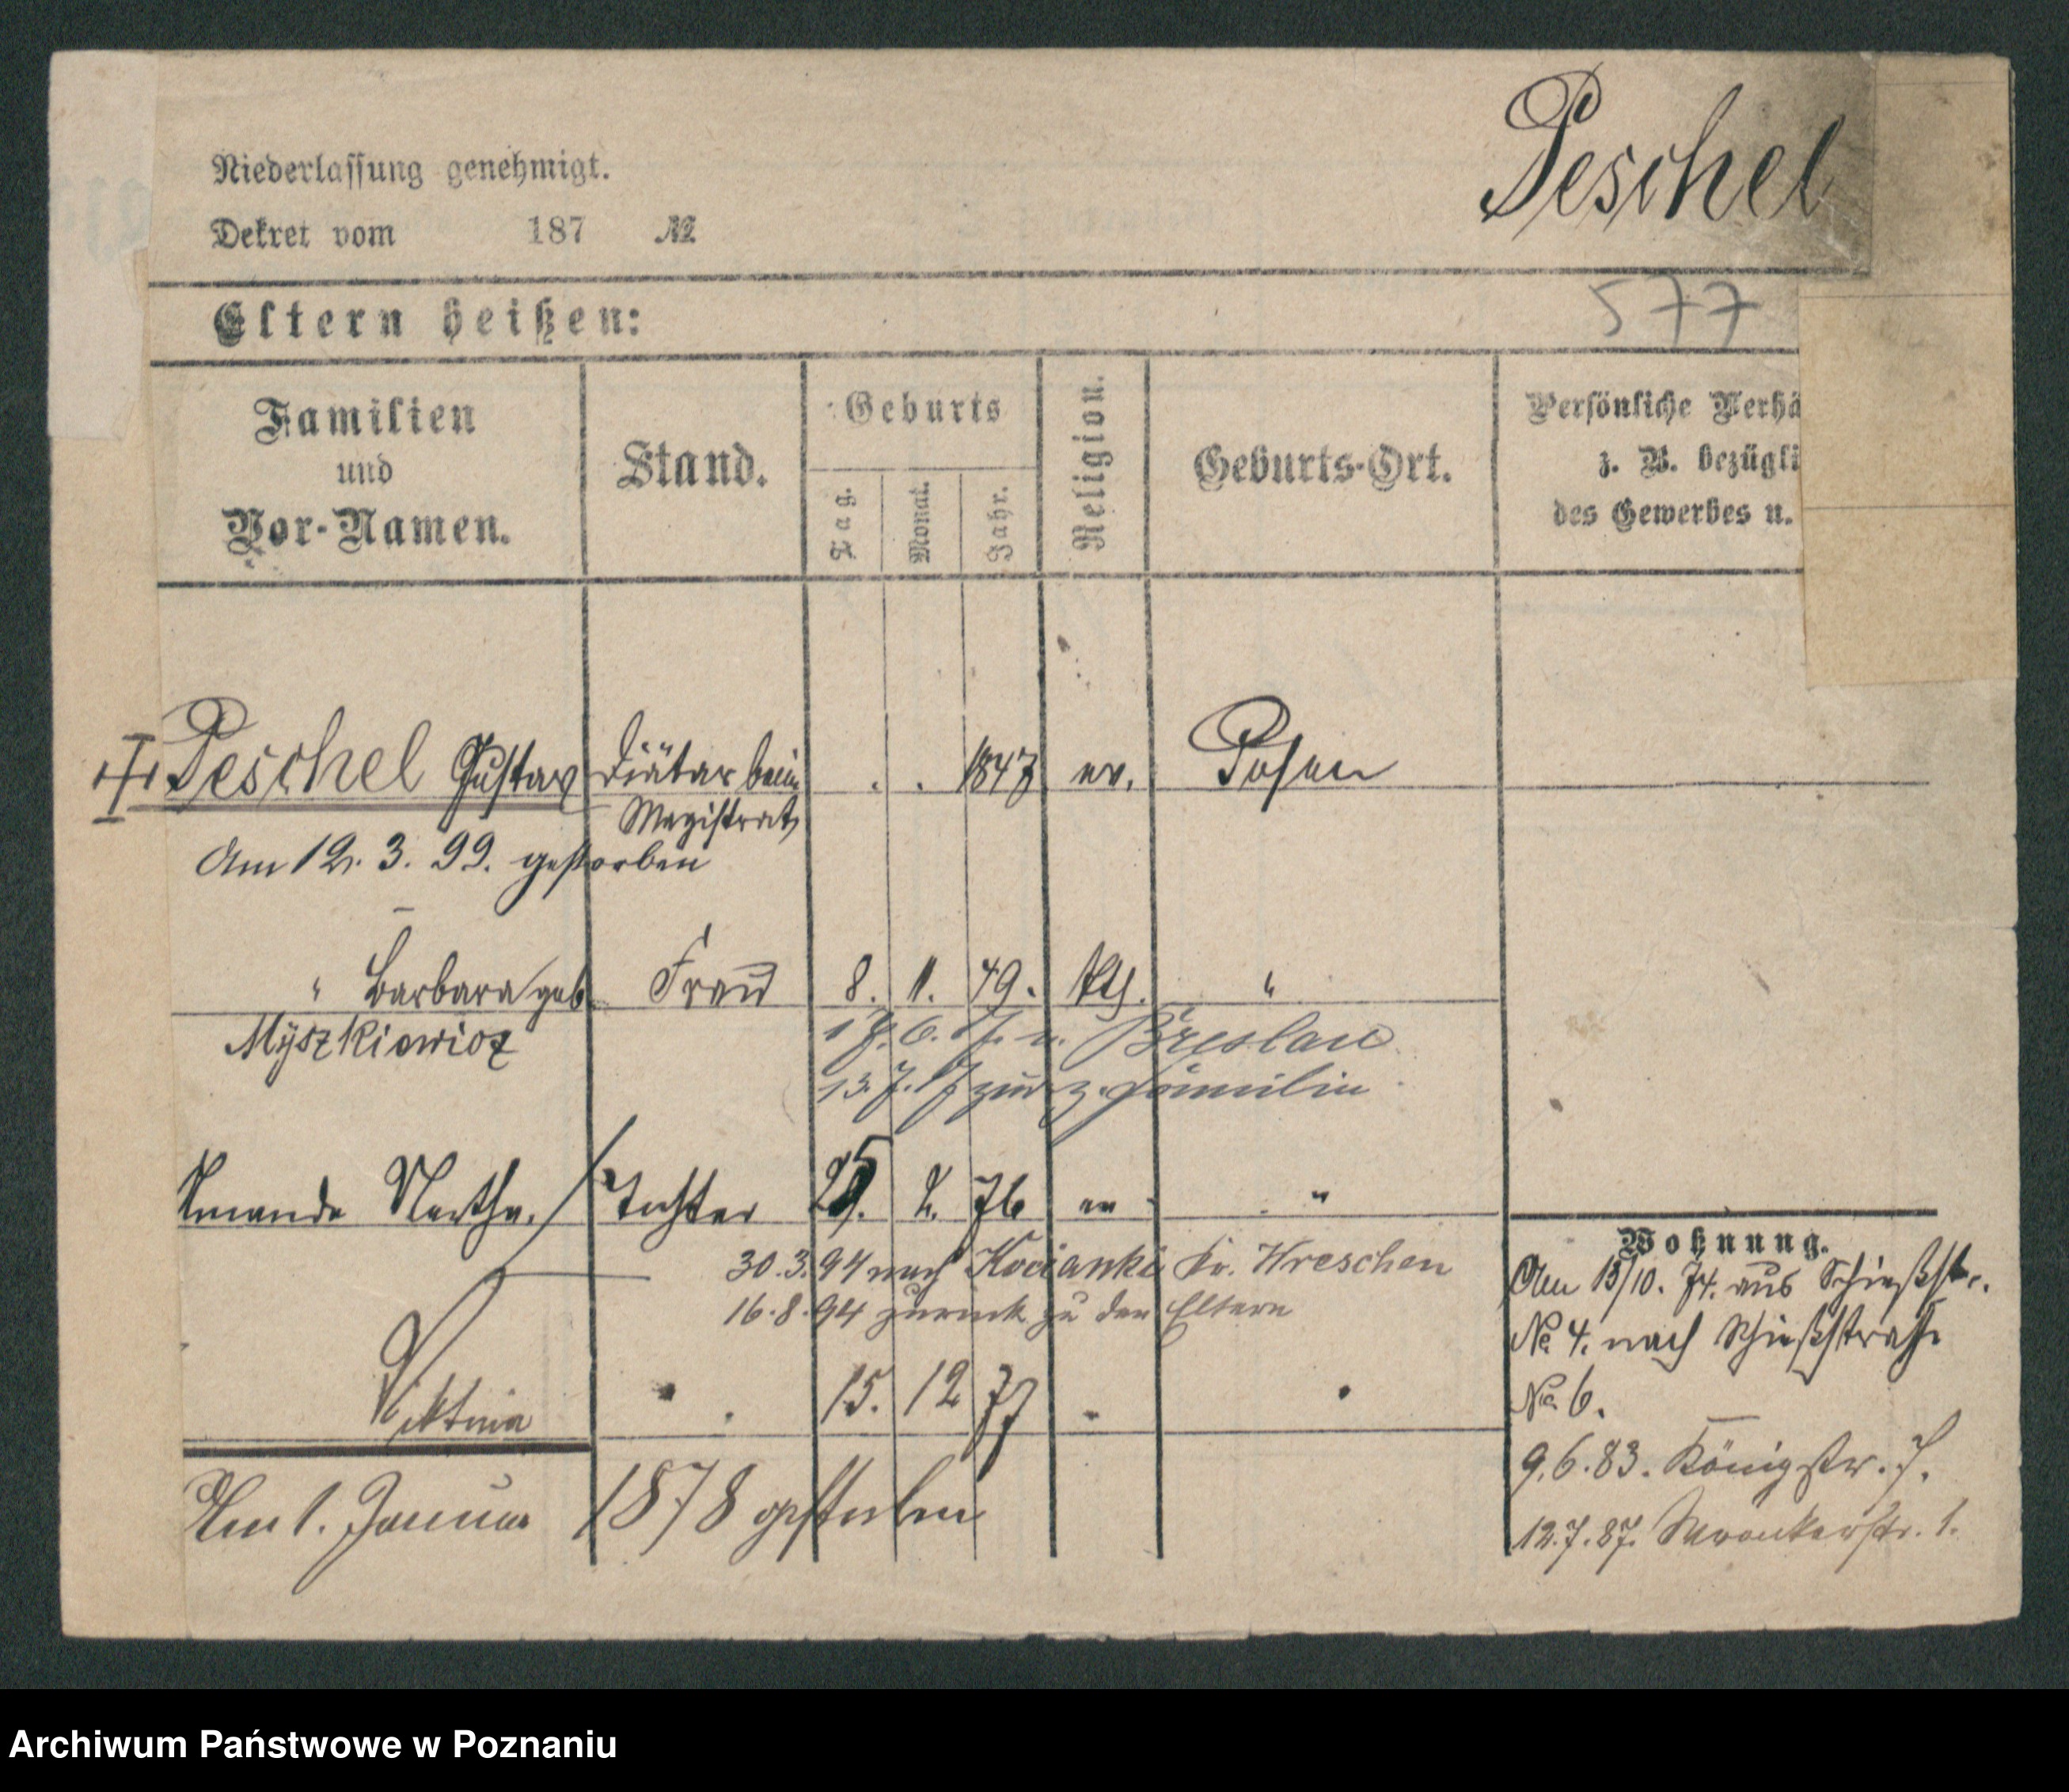 Peschel
Niederlassung genehmigt.
Dekret vom 187 №
577
Eltern heißen:
Familien
und
Vor-Namen.
Stand.
Geburts
Tag.
Monat.
Jahr.
Religion.
Geburts-Ort.
Persönliche Verhä
z. B. bezügli
des Gewerbes u.
Peschel Gustav Diätar beim . . 1847 ev. Posen
Magistrat
Am 12. 3. 99. gestorben
" Barbara geb. Frau 8. 1. 49. kth. "
Myszkiewicz
Breslau
13. 7. zur z. Familie
Amanda Martha. Tochter 25. 2. 76 ev "
30.3.94 nach Kocianki Kr. Wreschen
16.8.94 zurück zu den Eltern
Viktoria " 15. 12 77 " "
Am 1. Januar 1878 gestorben
Wohnung.
Am 15/10. 74. aus Schießstr.
№ 4. nach Schießstraße
№ 6.
9.6.83. Königstr. 7.
12.7.87. Wronkerstr. 1.
Archiwum Państwowe w Poznaniu